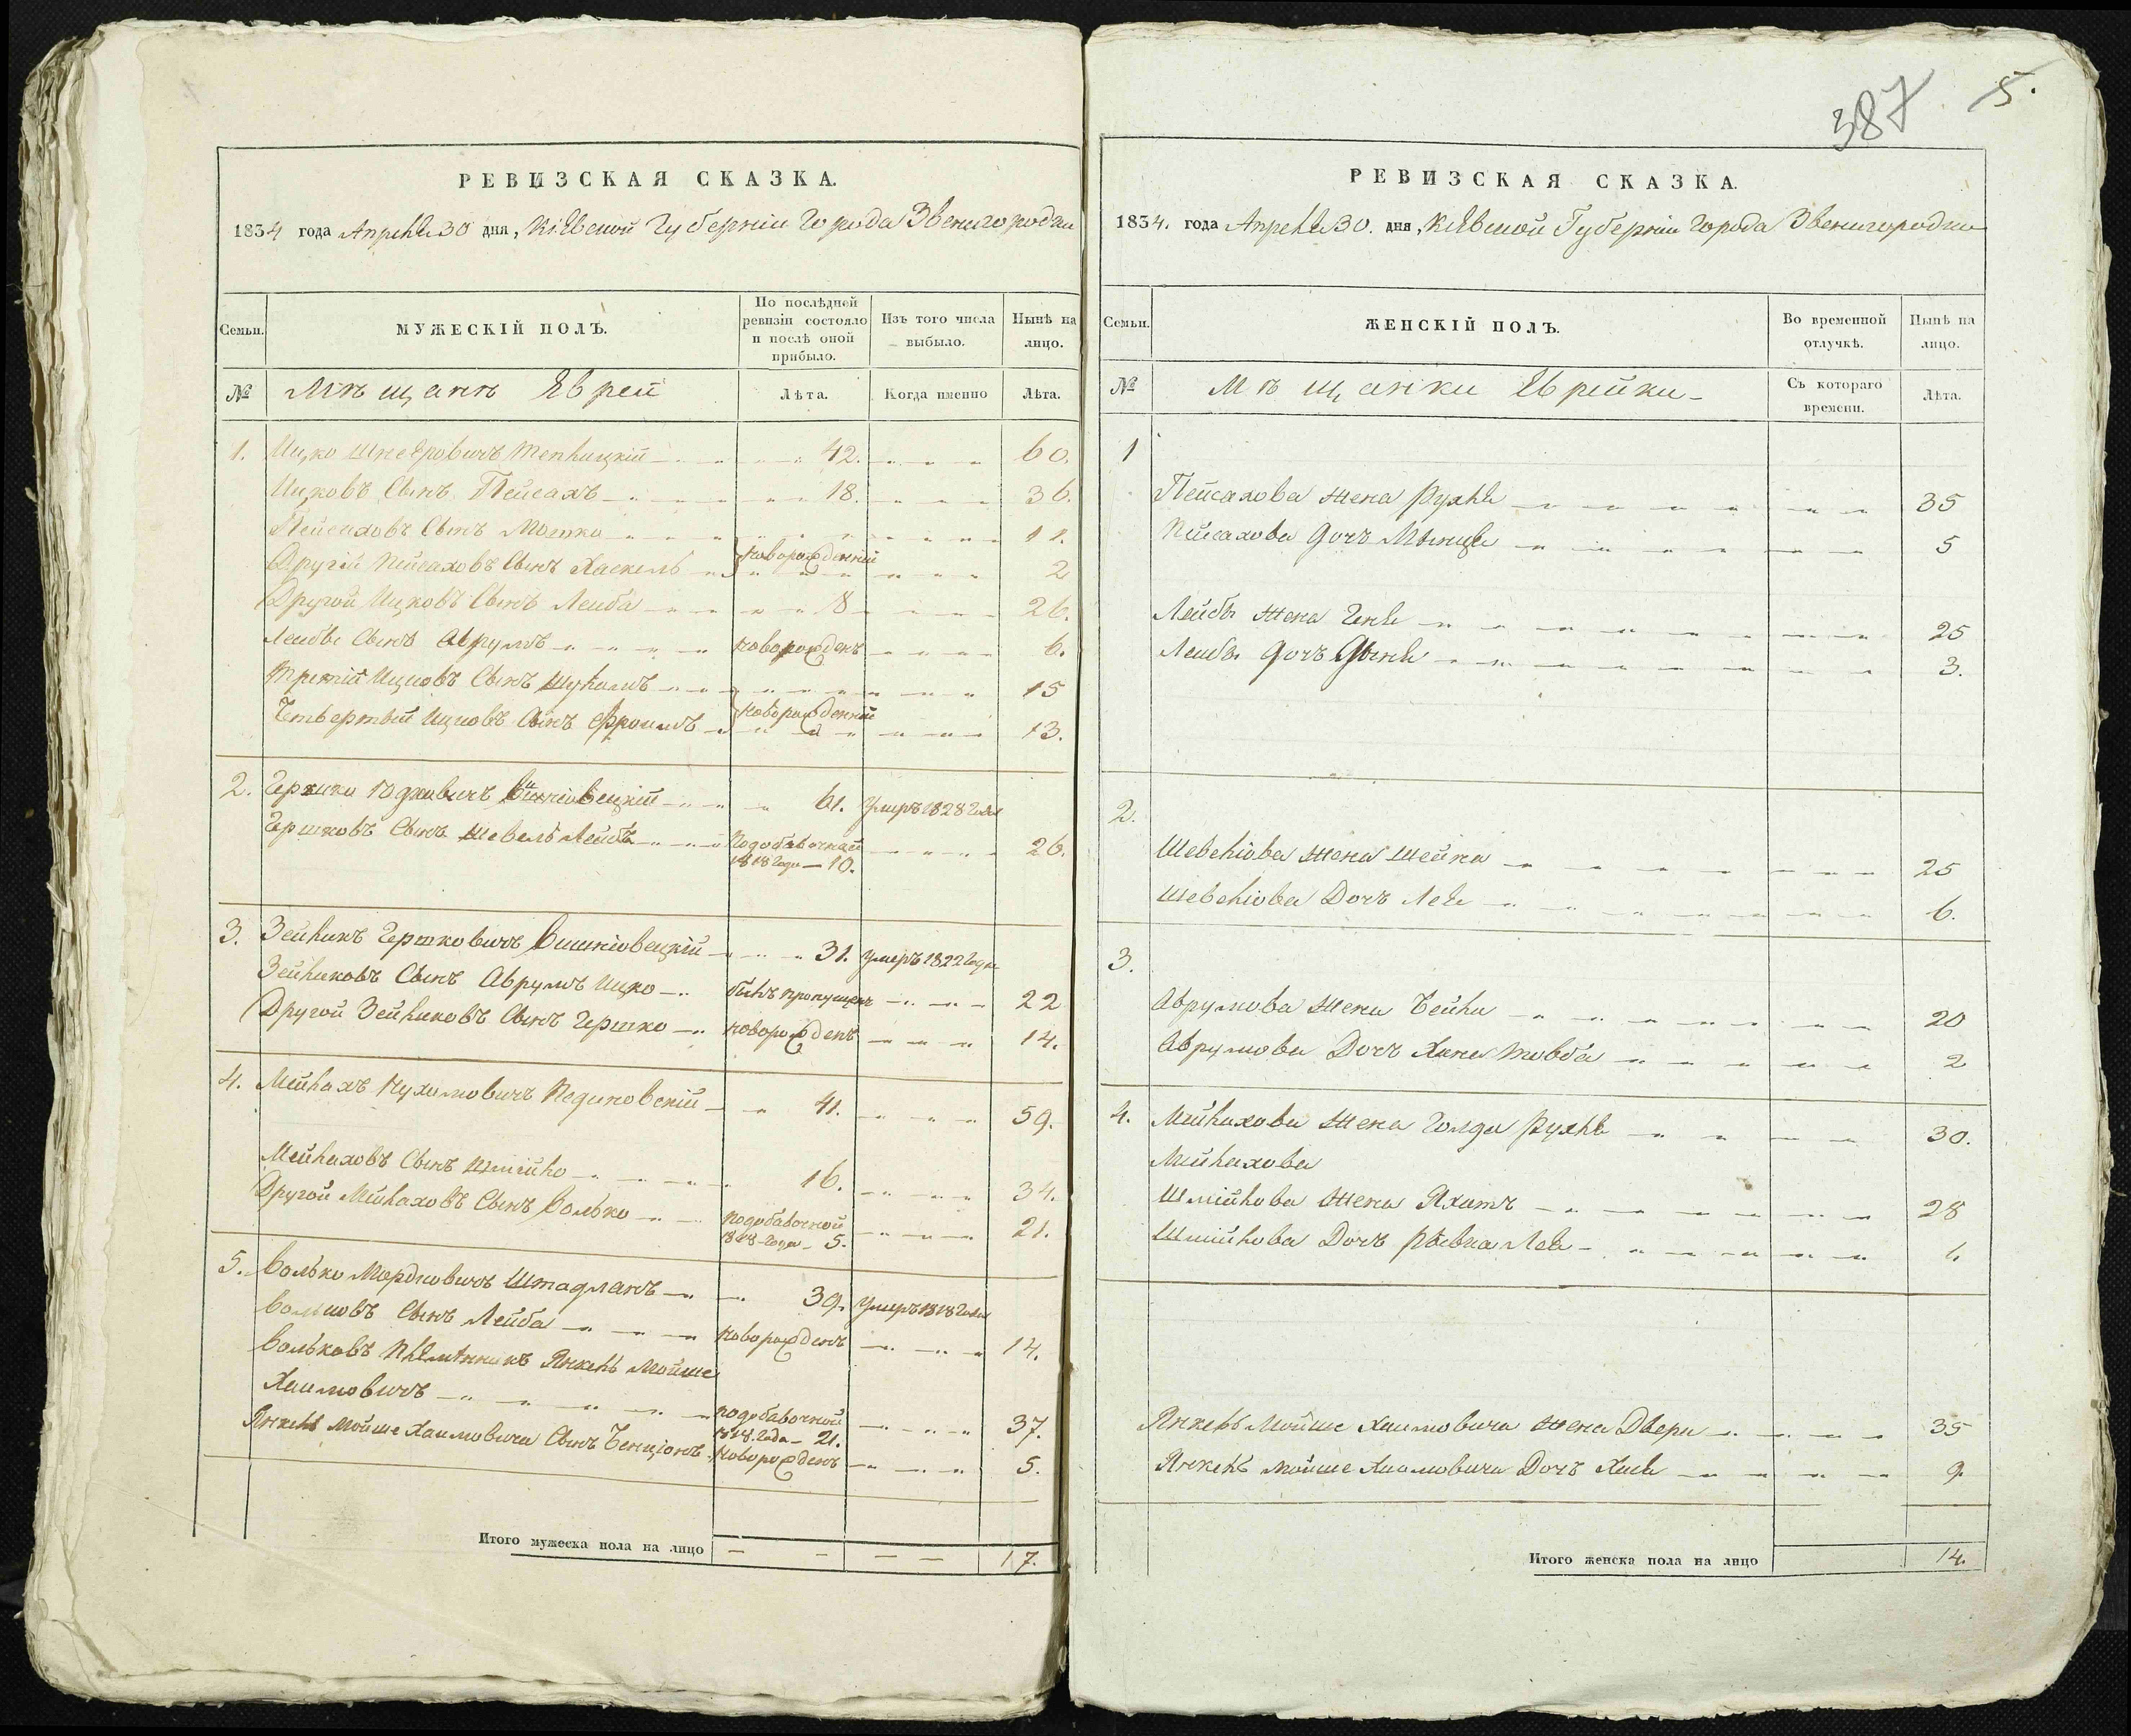 РЕВИЗСКАЯ СКАЗКА.
1834 года Апреля 30 дня, Кіевской Губерніи Города Звенигородки
Семьи.
МУЖЕСКІЙ ПОЛЪ.
По послѣдней ревизіи состояло и послѣ оной прибыло.
Изъ того числа выбыло.
Нынѣ на лицо.
№ Мѣщанъ Еврей
Лѣта.
Когда именно
Лѣта.
1. Ицко Шнееровичъ 42. 60.
Ицковъ Сынъ Пейсахъ 18. 36.
Пейсаховъ Сынъ Мошко 11.
Другій Пейсаховъ Сынъ Хаскель новорожденный 2
Другой Ицковъ Сынъ Лейба 8 26.
Лейбы Сынъ Аврумъ новорожденъ 6.
Третій Ицковъ Сынъ 15
Четвертый Ицковъ Сынъ Фроимъ новорожденный 13.
2. Гершко 61. умеръ 1828 года
Гершковъ Сынъ Шевель Лейба подобавочной 1818 года 10. 26.
3. Зейликъ Гершковичъ Вишніовецкій 31. умеръ 1822 года
Зейликовъ Сынъ Аврумъ Ицко былъ пропущенъ 22
Другой Зейликовъ Сынъ Гершко новорожденъ 14.
4. Мейлахъ Нухимовичъ 41. 59.
Мейлаховъ Сынъ Шмійло 16. 34.
Другой Мейлаховъ Сынъ Волько подобавочной 1818 года 5. 21.
5. Волько Мордковичъ Штадланъ 39. умеръ 1818 года
Вольковъ Сынъ Лейба новорожденъ 14.
Вольковъ Племянникъ Янкель Мойше
Хаимовичъ подобавочной 1818 года 21. 37.
Янкель Мойше Хаимовича Сынъ Бенціонъ новорожденъ 5.
Итого мужеска пола на лицо 17.
387 5.
РЕВИЗСКАЯ СКАЗКА.
1834. года Апреля 30. дня, Кіевской Губерніи Города Звенигородки
Семьи.
ЖЕНСКІЙ ПОЛЪ.
Во временной отлучкѣ.
Нынѣ на лицо.
№ Мѣщанки Еврейки
Съ котораго времени.
Лѣта.
1
Пейсахова жена Рухля 35
Пейсахова дочъ 5
Лейбы жена Геня 25
Лейбы дочъ 3.
2.
Шевеліова жена Шейна 25
Шевеліова Дочъ Лея 6.
3.
Аврумова жена Бейла 20
Аврумова Дочъ Хана Товба 2
4. Мейлахова жена Голда Рухля 30.
Мейлахова
Шмійлова жена 28
Шмійлова Дочъ Лея 6
Янкель Мойше Хаимовича жена Двера 35
Янкель Мойше Хаимовича Дочъ Хая 9
Итого женска пола на лицо 14.